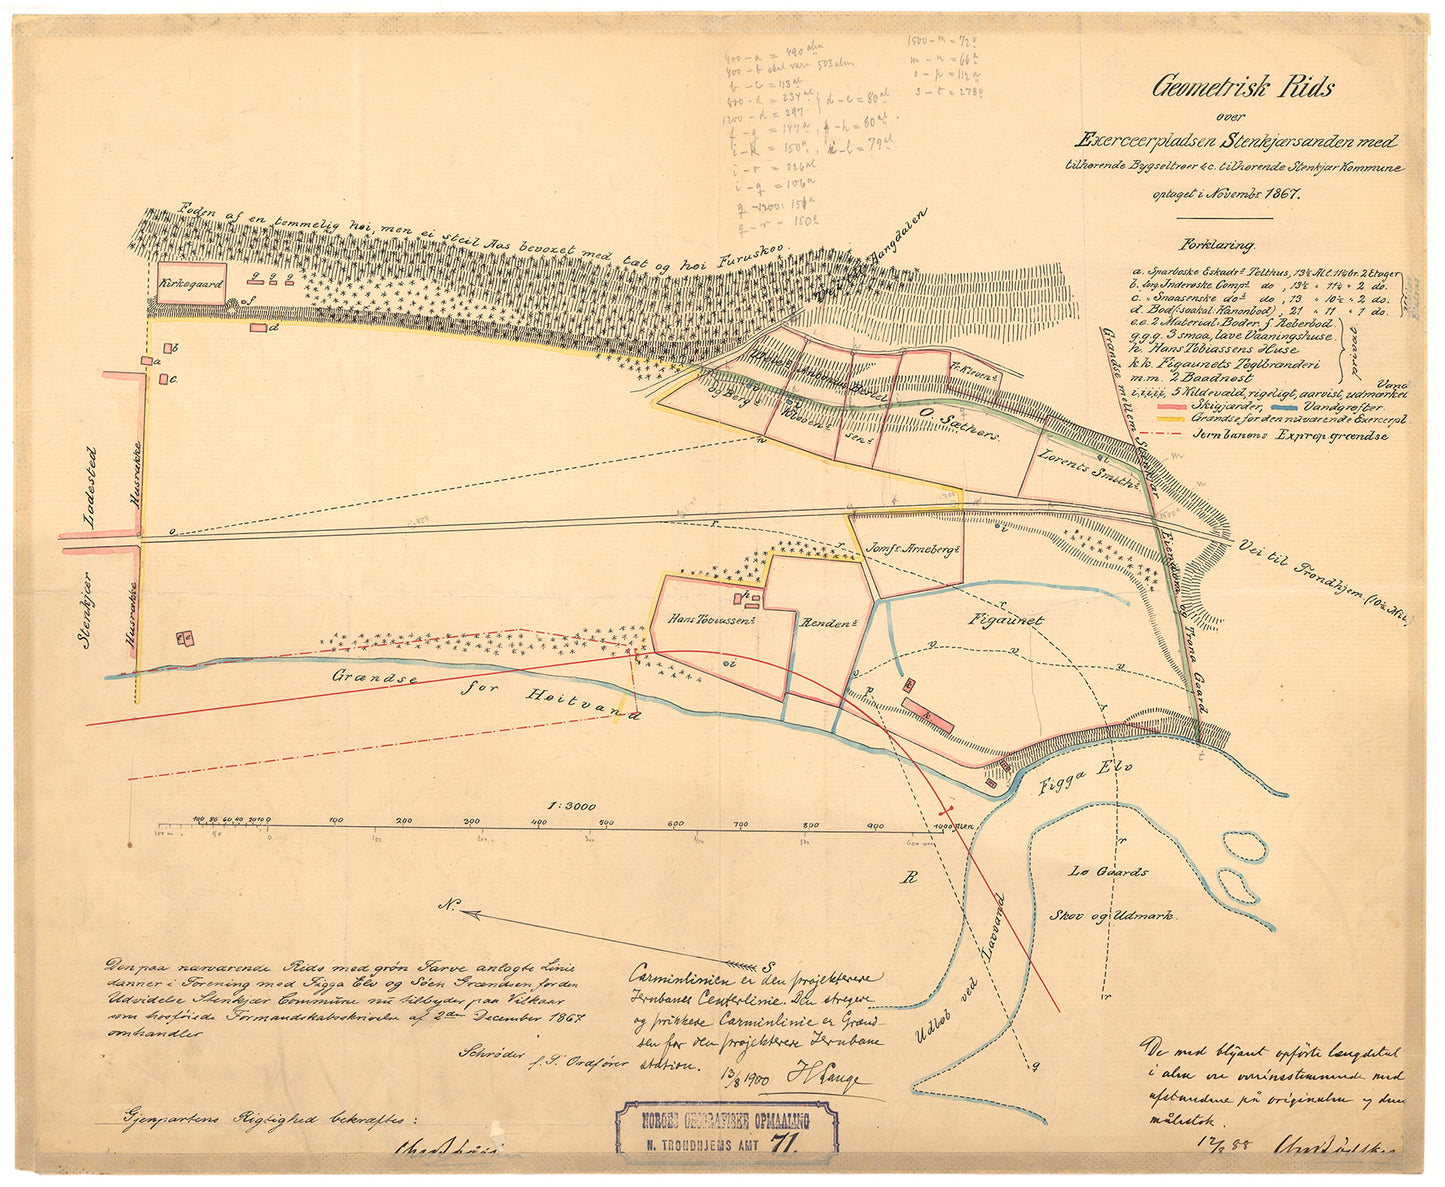 400 - a = 490 alm
400 - b skal være 503 alm
b - c = 113 al
800 - d = 234 al
d - e = 80 al
1200 - d = 297
f - g = 147 a
g - h = 60 al
i - k = 150 a
k - l = 79 al
i - r = 226 al
i - q = 106 a
q - 1200 = 151 a
q - r = 150 a
1500 - m = 72 a
m - n = 66 a
o - p = 112 a
s - t = 278 a
Geometrisk Rids
over
Exerceerpladsen Stenkjærsanden med
tilhørende Bygseltroer &c. tilhørende Stenkjær Kommune
optaget i Novembr 1867.
Forklaring.
a. Sparboske Eskadrs Telthus, 13½ Al. l. 11¼ br. 2 Etager
b. Inderøske Comps do, 13½ " 11¼ " 2 do.
c. " Snaasenske do do, 13 " 10½ " 2 do.
d. Bod (saakal. Kanonbod), 21 " 11 " 1 do.
e.e. 2 Material Boder. f. Reberbod
g.g.g. 3 smaa, lave Vaaningshuse
h. Hans Tobiassens Huse
k.k. Figaunets Teglbrænderi
m.m. 2 Baadnøst
privat
i.i.i.i.i, 5 Kildevæld, rigeligt, aarvist, udmærket Vand
Skigjærder, Vandgrøfter
Grændse for den nuværende Exercerpl.
Jernbanens Exprop. grændse
Foden af en temmelig høi, men ei steil Aas bevoxet med tæt og høi Furuskov.
Kirkegaard
g g g
f
d
b
a
c
Vei til Aangdalen
og Berg
Klevens
Antonin Beret
sens
Fr. Klevens
O. Sæthers.
Lorents Smiths
Grændse mellem Stenkjær
Eiendom og Trøna Gaard
Ladested
Husrække
Stenkjær
Husrække
Jomfr. Arnebergs
Vei til Trondhjem (10¼ Mil)
Hans Tobiassens
h
Rendens
Figaunet
Grændse for Høitvand
i
v v v v
p
k
Figga Elv
1:3000
100 80 60 40 20 0 100 200 300 400 500 600 700 800 900 1000 Alen.
100 m. 50 100 200 300 400 500 600 m
R
r
Lø Gaards
Skov og Udmark.
r
N.
S
Udløb ved Lavvand
q
Den paa nærværende Rids med grøn Farve anlagte Linie
danner i Forening med Figga Elv og Søen Grændsen for den
Udvidelse Stenkjær Commune nu tilbyder paa Vilkaar
som hosføiede Formandskabsskrivelse af 2den December 1867
omhandler
Schrøder
f. T. Ordfører
Carminlinien er den projekterede
Jernbanes Centerlinie. Den stregede
og prikkede Carminlinie er Grænd-
sen for den projekterede Jernbane
station.
13/8 1900 H Lange
Gjenpartens Rigtighed bekræftes:
NORGES GEOGRAFISKE OPMAALING
N. TRONDHJEMS AMT 71.
De med blyant opførte længdetal
i alen ere overensstemmende med
afstandene på originalen og dens
målestok.
12/3 88